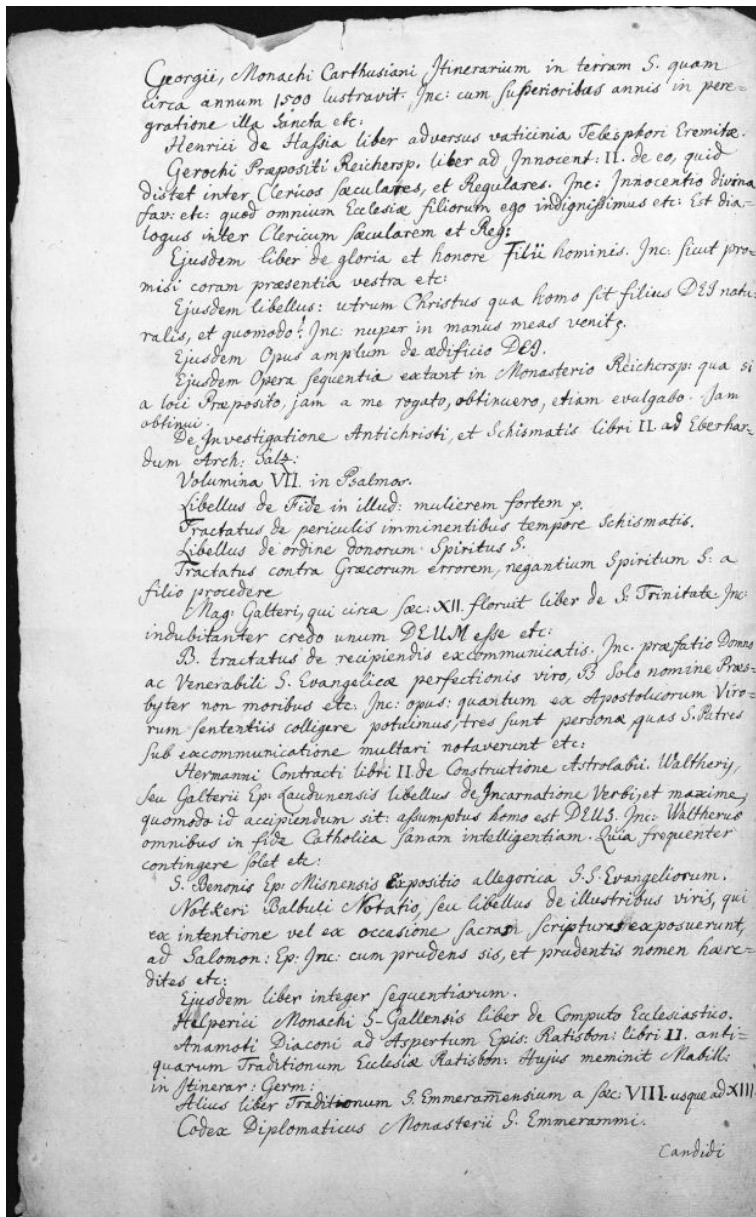 Georgii, Monachi Carthusiani Itinerarium in terram S. quam
circa annum 1500 lustravit. Inc: cum superioribus annis in pere=
gratione illa Sancta etc:
Henrici de Hassia liber adversus vaticinia Telesphori Eremitæ.
Gerochi Præpositi Reichersp. liber ad Innocent: II. de eo, quid
distet inter Clericos sæculares, et Regulares. Inc: Innocentio divina
fav: etc: quod omnium Ecclesiæ filiorum ego indignissimus etc: Est dia=
logus inter Clericum sæcularem et Reg:
Ejusdem liber de gloria et honore Filii hominis. Inc: sicut pro=
misi coram præsentia vestra etc:
Ejusdem libellus: utrum Christus qua homo sit filius DEI natu=
ralis, et quomodo? Inc: nuper in manus meas venit
Ejusdem Opus amplum de ædificio DEI.
Ejusdem Opera sequentia extant in Monasterio Reichersp: qua si
a loci Præposito, jam a me rogato, obtinuero, etiam evulgabo. Jam
obtinui.
De Investigatione Antichristi, et Schismatis libri II. ad Eberhar=
dum Arch: Salz:
Volumina VII. in Psalmos.
Libellus de Fide in illud: mulierem fortem
Tractatus de periculis imminentibus tempore Schismatis.
Libellus de ordine donorum Spiritus S.
Tractatus contra Græcorum errorem, negantium Spiritum S: a
filio procedere
Mag: Galteri, qui circa sæc: XII. floruit liber de S: Trinitate Inc:
indubitanter credo unum DEUM esse etc:
B. tractatus de recipiendis excommunicatis. Inc. præfatio Domno
ac Venerabili S. Evangelicæ perfectionis viro, B Solo nomine Præs=
byter non moribus etc: Inc: opus: quantum ex Apostolicorum Viro=
rum sententiis colligere potuimus, tres sunt personæ, quas S. Patres
sub excommunicatione multari notaverunt etc:
Hermanni Contracti libri II. de Constructione Astrolabii. Waltherij,
seu Galterii Ep: Laudunensis libellus de Incarnatione Verbi, et maxime,
quomodo id accipiendum sit: assumptus homo est DEUS. Inc: Waltherus
omnibus in fide Catholica sanam intelligentiam. Quia frequenter
contingere solet etc:
S. Benonis Ep: Misnensis Expositio allegorica S.S. Evangeliorum.
Notkeri Balbuli Notatio, seu libellus de illustribus viris, qui
ex intentione vel ex occasione sacram scripturas exposuerunt,
ad Salomon: Ep: Inc: cum prudens sis, et prudentis nomen hære=
dites etc:
Ejusdem liber integer sequentiarum.
Helperici Monachi S. Gallensis liber de Computo Ecclesiastico.
Anamoti Diaconi ad Aspertum Epis: Ratisbon: libri II. anti=
quarum Traditionum Ecclesiæ Ratisbon: Hujus meminit Mabill:
in Itinerar: Germ:
Alius liber Traditionum S. Emmeramensium a sæc: VIII. usque ad XIII.
Codex Diplomaticus Monasterii S. Emmerammi.
Candidi